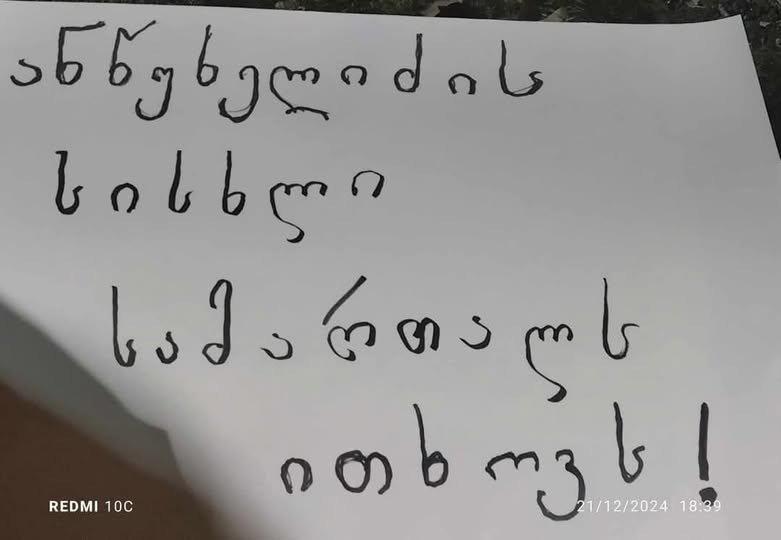 ანწუხელიძის
სისხლი
სამართალს
ითხოვს!
REDMI 10C 21/12/2024 18:39